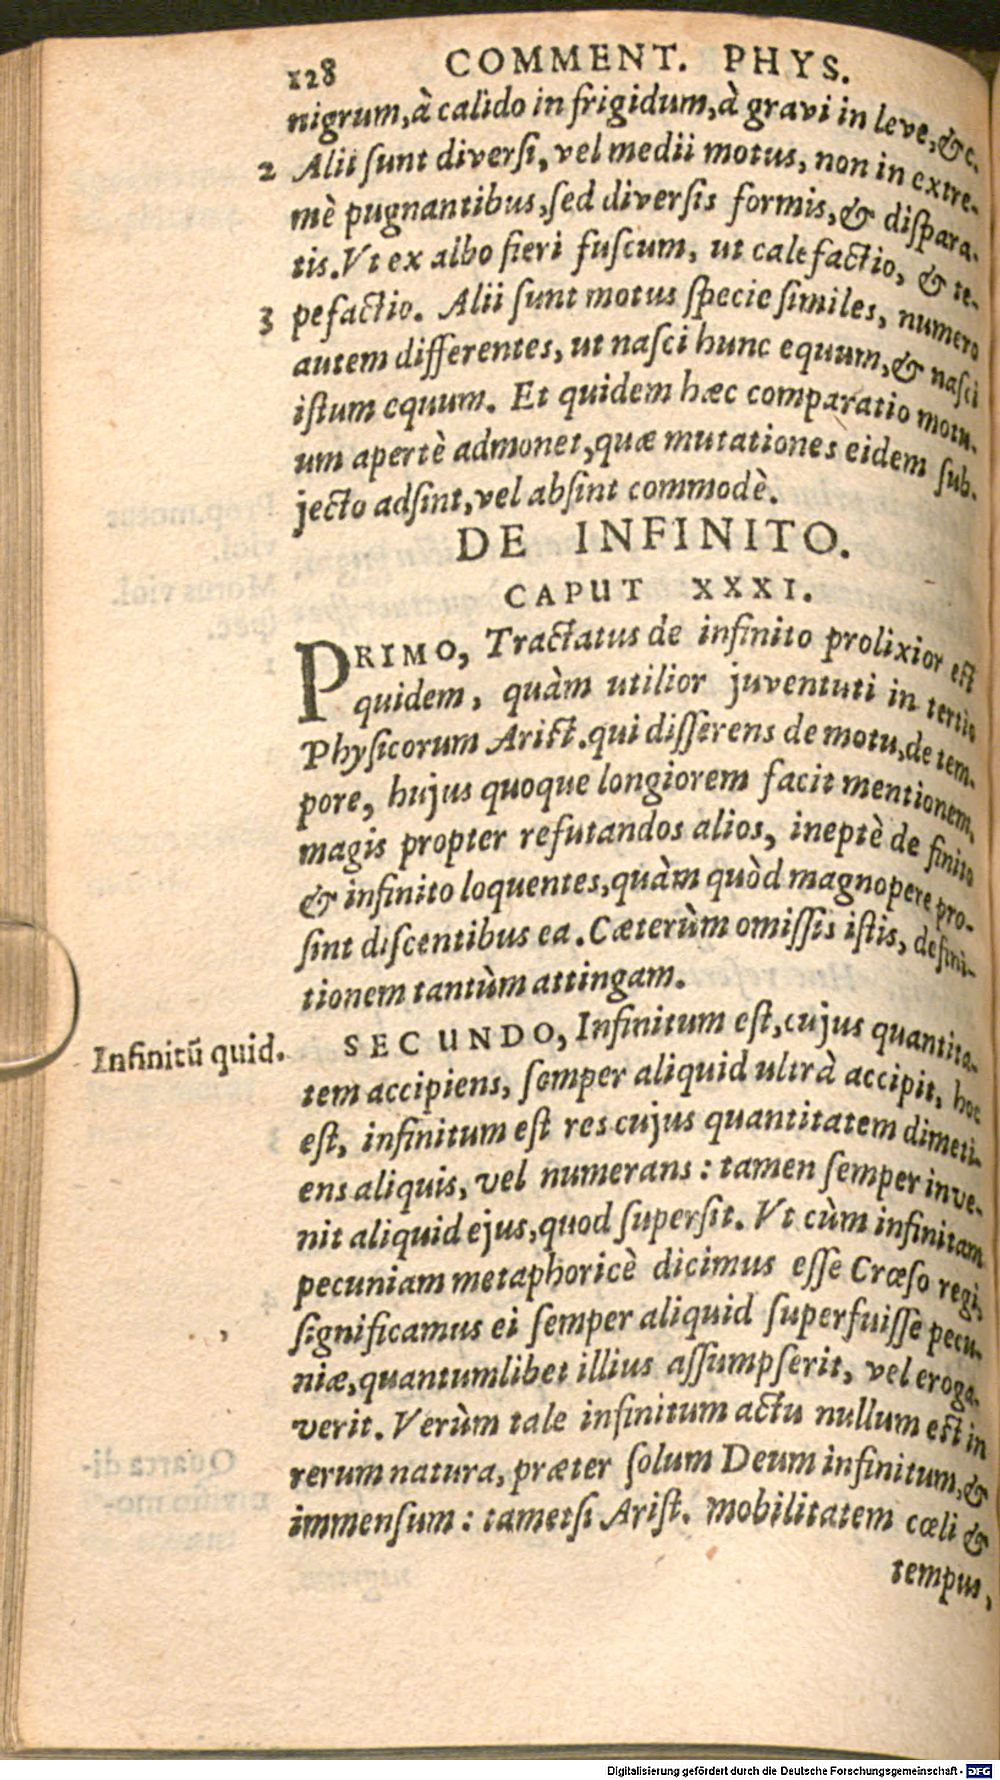 128 COMMENT. PHYS.
nigrum, à calido in frigidum, à gravi in leve, &c.
2 Alii ſunt diverſi, vel medii motus, non in extre-
mè pugnantibus, ſed diverſis formis, & diſpara-
tis. Vt ex albo fieri fuſcum, ut calefactio, & te-
3 pefactio. Alii ſunt motus ſpecie ſimiles, numero
autem differentes, ut naſci hunc equum, & naſci
iſtum equum. Et quidem hæc comparatio motu-
um apertè admonet, quæ mutationes eidem ſub-
jecto adſint, vel abſint commodè.
DE INFINITO.
CAPUT XXXI.
PRIMO, Tractatus de infinito prolixior eſt
quidem, quàm utilior juventuti in tertio
Phyſicorum Ariſt. qui diſſerens de motu, de tem-
pore, hujus quoque longiorem facit mentionem,
magis propter refutandos alios, ineptè de finito
& infinito loquentes, quàm quòd magnopere pro-
ſint diſcentibus ea. Cæterùm omiſſis iſtis, defini-
tionem tantùm attingam.
Infinitũ quid.
SECUNDO, Infinitum eſt, cujus quantita-
tem accipiens, ſemper aliquid ultrà accipit, hoc
eſt, infinitum eſt res cujus quantitatem dimeti-
ens aliquis, vel numerans: tamen ſemper inve-
nit aliquid ejus, quod ſuperſit. Vt cùm infinitam
pecuniam metaphoricè dicimus eſſe Crœſo regi,
ſignificamus ei ſemper aliquid ſuperfuiſſe pecu-
niæ, quantumlibet illius aſſumpſerit, vel eroga-
verit. Verùm tale infinitum actu nullum eſt in
rerum natura, præter ſolum Deum infinitum, &
immenſum: tametſi Ariſt. mobilitatem cœli &
tempus,
Digitalisierung gefördert durch die Deutsche Forschungsgemeinschaft - DFG